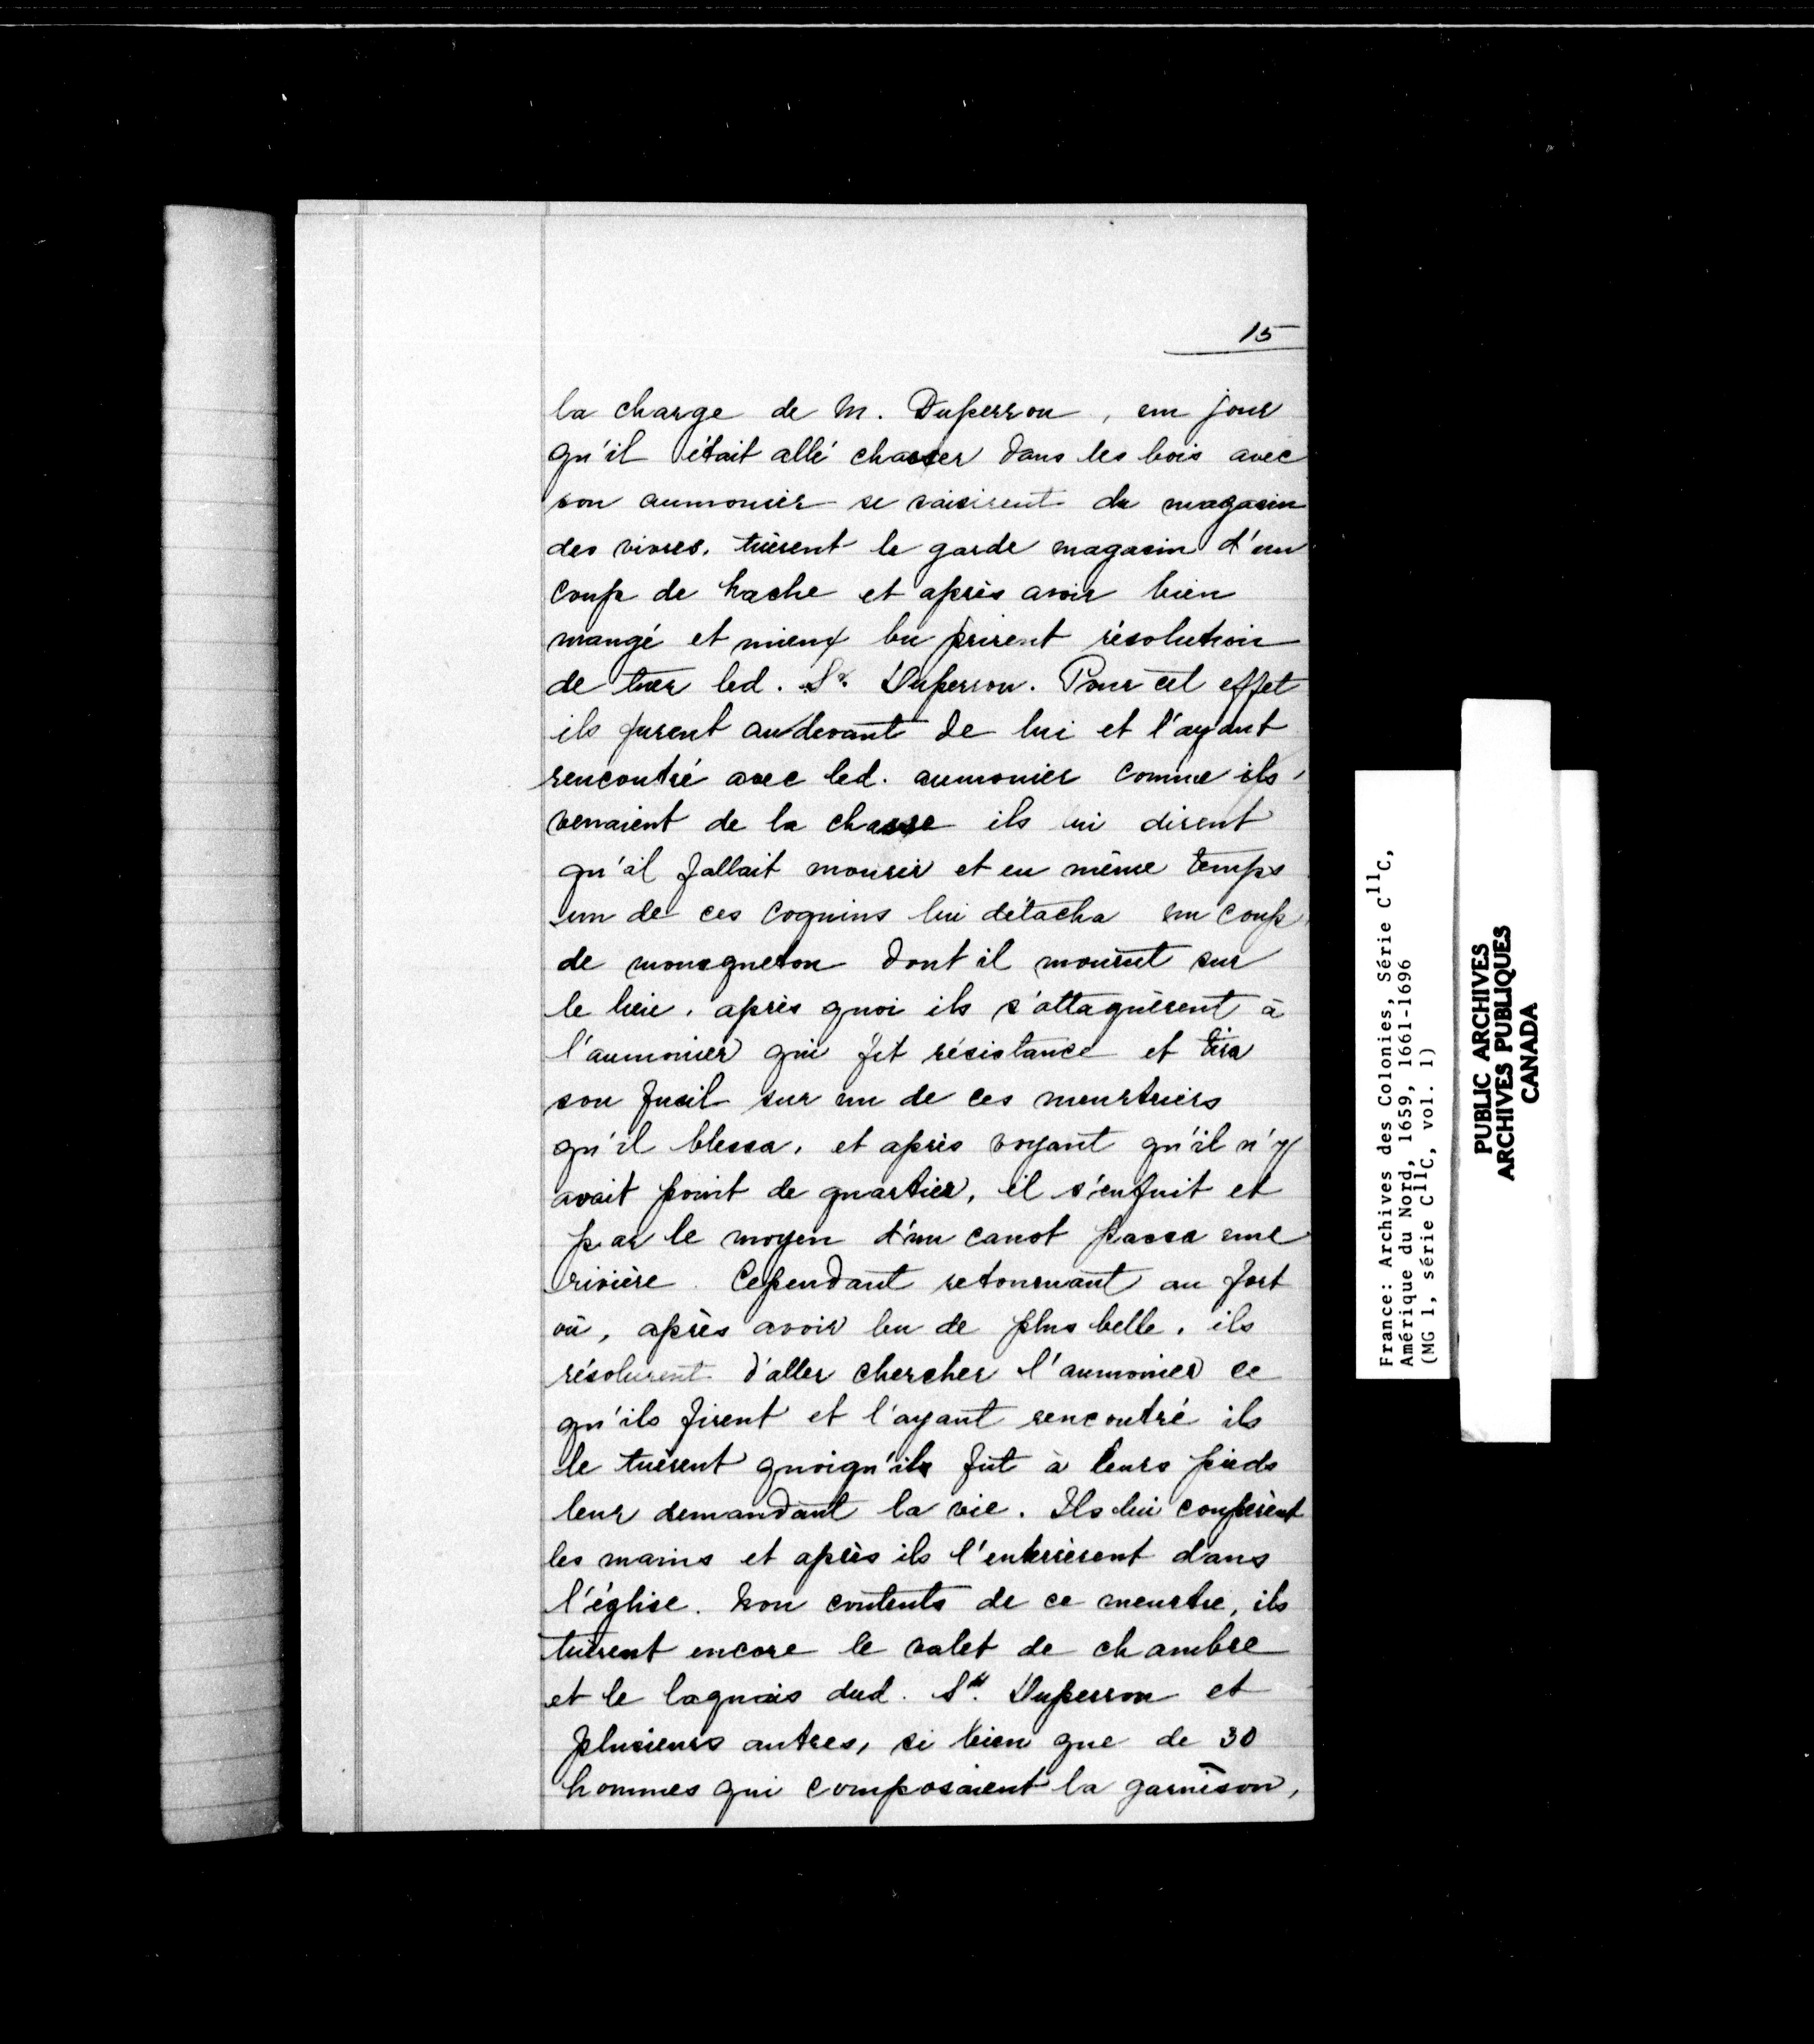 15
la charge de M. Duperron, un jour
qu'il était allé chasser dans les bois avec
son aumonier se saisirent du magasin
des vivres, tuèrent le garde magasin d'un
coup de hache et après avoir bien
mangé et mieux bu prirent résolution
de tuer led. Sr. Duperron. Pour cet effet
ils furent au devant de lui et l'ayant
rencontré avec led. aumonier comme ils
venaient de la chasse ils lui dirent
qu'il fallait mourir et en même temps
un de ces coquins lui détacha un coup
de mousqueton dont il mourut sur
le lieu, après quoi ils s'attaquèrent à
l'aumonier qui fit résistance et tira
son fusil sur un de ces meurtriers
qu'il blessa, et après voyant qu'il n'y
avait point de quartier, il s'enfuit et
par le moyen d'un canot passa une
rivière. Cependant retournant au fort
où, après avoir bu de plus belle, ils
résolurent d'aller chercher l'aumonier ce
qu'ils firent et l'ayant rencontré ils
le tuèrent quoiqu'il fût à leurs pieds
leur demandant la vie. Ils lui coupèrent
les mains et après ils l'enterrèrent dans
l'église. Non contents de ce meurtre, ils
tuèrent encore le valet de chambre
et le laquais dud. Sr. Duperron et
plusieurs autres, si bien que de 30
hommes qui composaient la garnison,
France: Archives des Colonies, Série C11C,
Amérique du Nord, 1659, 1661-1696
(MG 1, série C11C, vol. 1)
PUBLIC ARCHIVES
ARCHIVES PUBLIQUES
CANADA